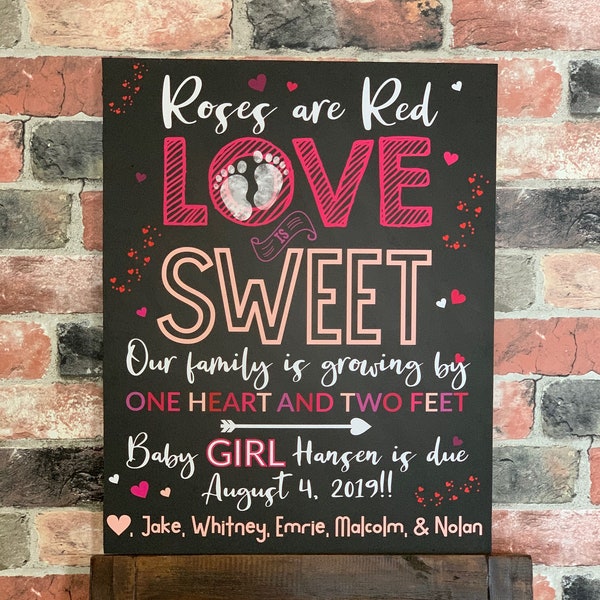 Roses are Red
LOVE
IS
SWEET
Our family is growing by
ONE HEART AND TWO FEET
Baby GIRL Hansen is due
August 4, 2019!!
, Jake, Whitney, Emrie, Malcolm, & Nolan